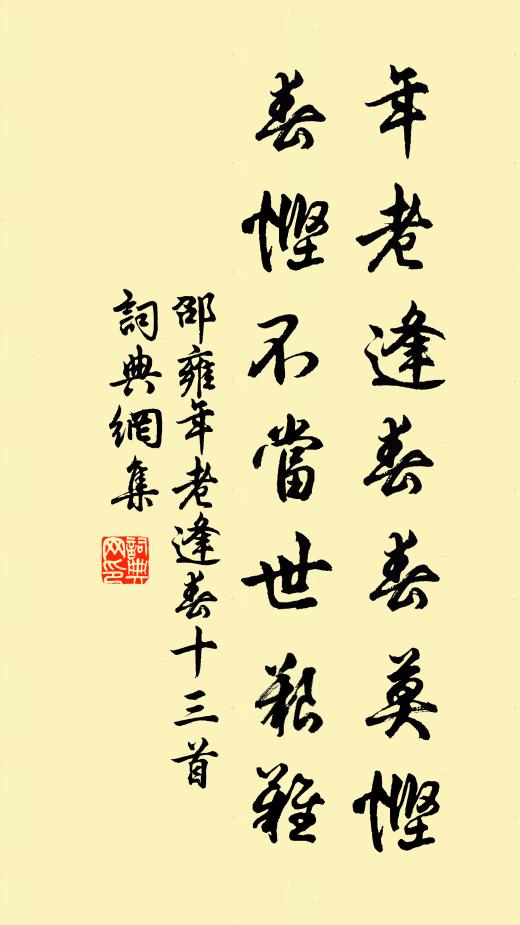 年老逢春春莫慳
春慳不當世艱難
邵雍年老逢春十三首
詞典網集
詞典
网印